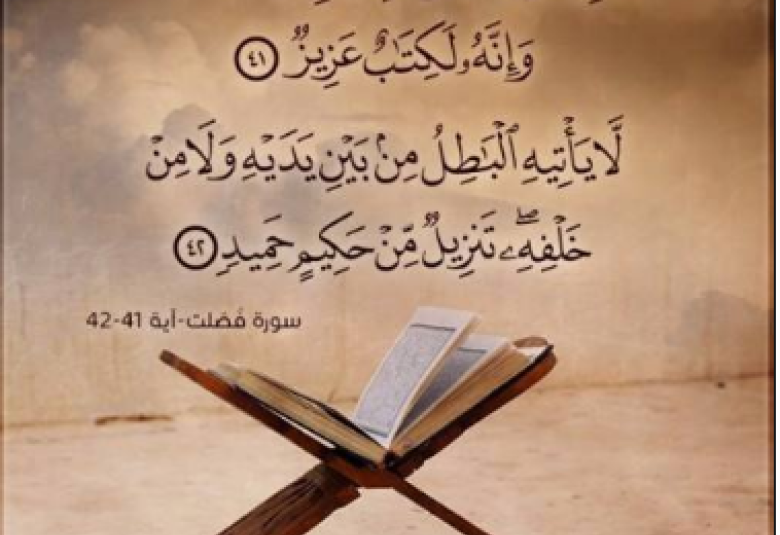 وَإِنَّهُۥ لَكِتَـٰبٌ عَزِيزٌ ﴿٤١﴾
لَّا يَأْتِيهِ ٱلْبَـٰطِلُ مِنۢ بَيْنِ يَدَيْهِ وَلَا مِنْ
خَلْفِهِۦۖ تَنزِيلٌ مِّنْ حَكِيمٍ حَمِيدٍ ﴿٤٢﴾
سورة فُصلت-آية 41-42